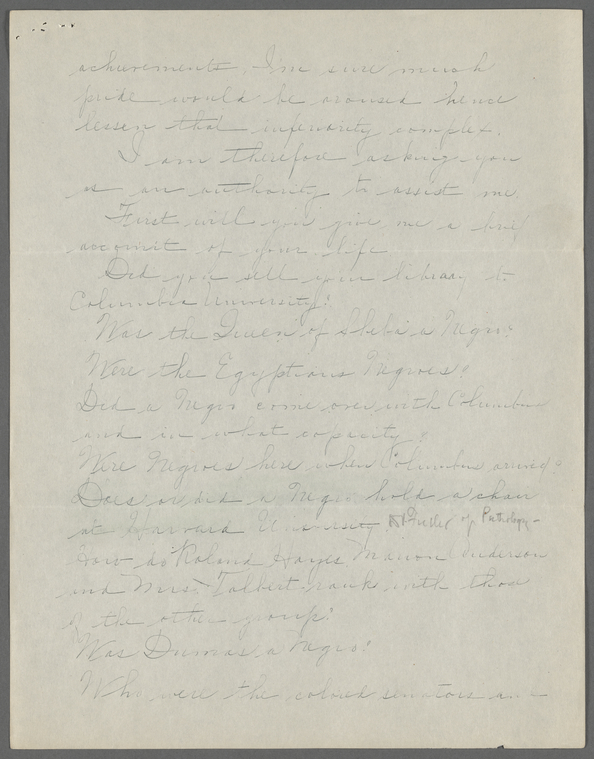 achievements, I'm sure much
pride would be aroused hence
lessen that inferiority complex.
I am therefore asking you
as an authority to assist me
First will you give me a brief
account of your life
Did you sell your library to
Columbia University?
Was the Queen of Sheba a Negro?
Were the Egyptians Negroes?
Did a Negro come over with Columbus
and in what capacity?
Were Negroes here when Columbus arrived?
Does or did a Negro hold a chair
at Harvard University of Pathology-
How do Roland Hayes, Marion Anderson
and Mrs. Talbert rank with those
of the other group?
Was Dumas a Negro?
Who were the colored senators